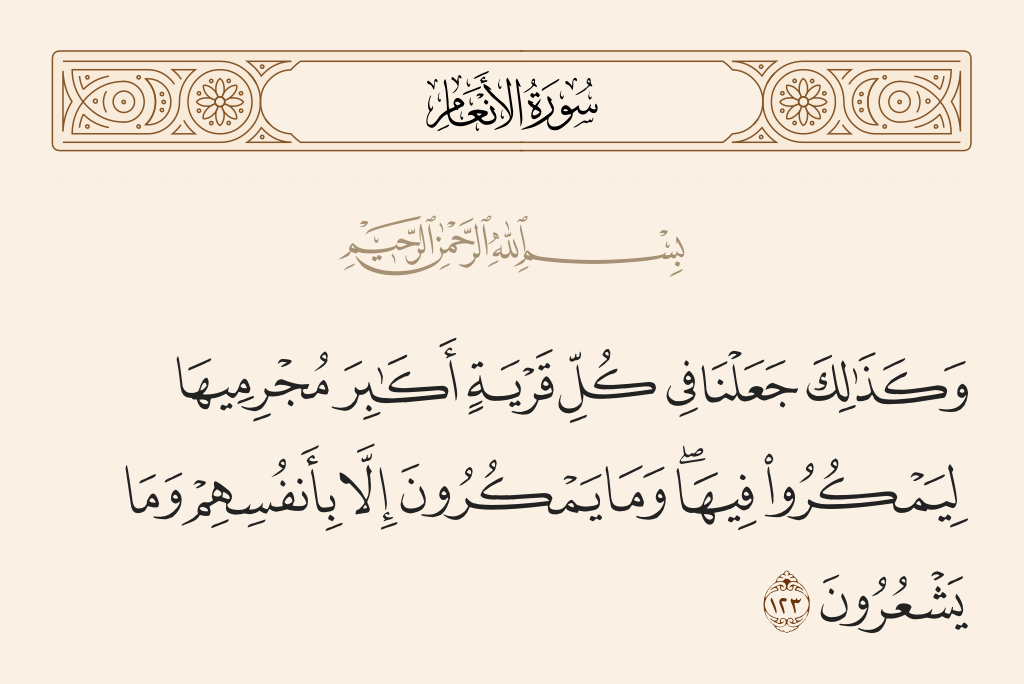 سُورَةُ الأَنْعَامِ
بِسْمِ ٱللَّهِ ٱلرَّحْمَٰنِ ٱلرَّحِيمِ
وَكَذَٰلِكَ جَعَلْنَا فِى كُلِّ قَرْيَةٍ أَكَٰبِرَ مُجْرِمِيهَا
لِيَمْكُرُوا۟ فِيهَا ۖ وَمَا يَمْكُرُونَ إِلَّا بِأَنفُسِهِمْ وَمَا
يَشْعُرُونَ ١٢٣